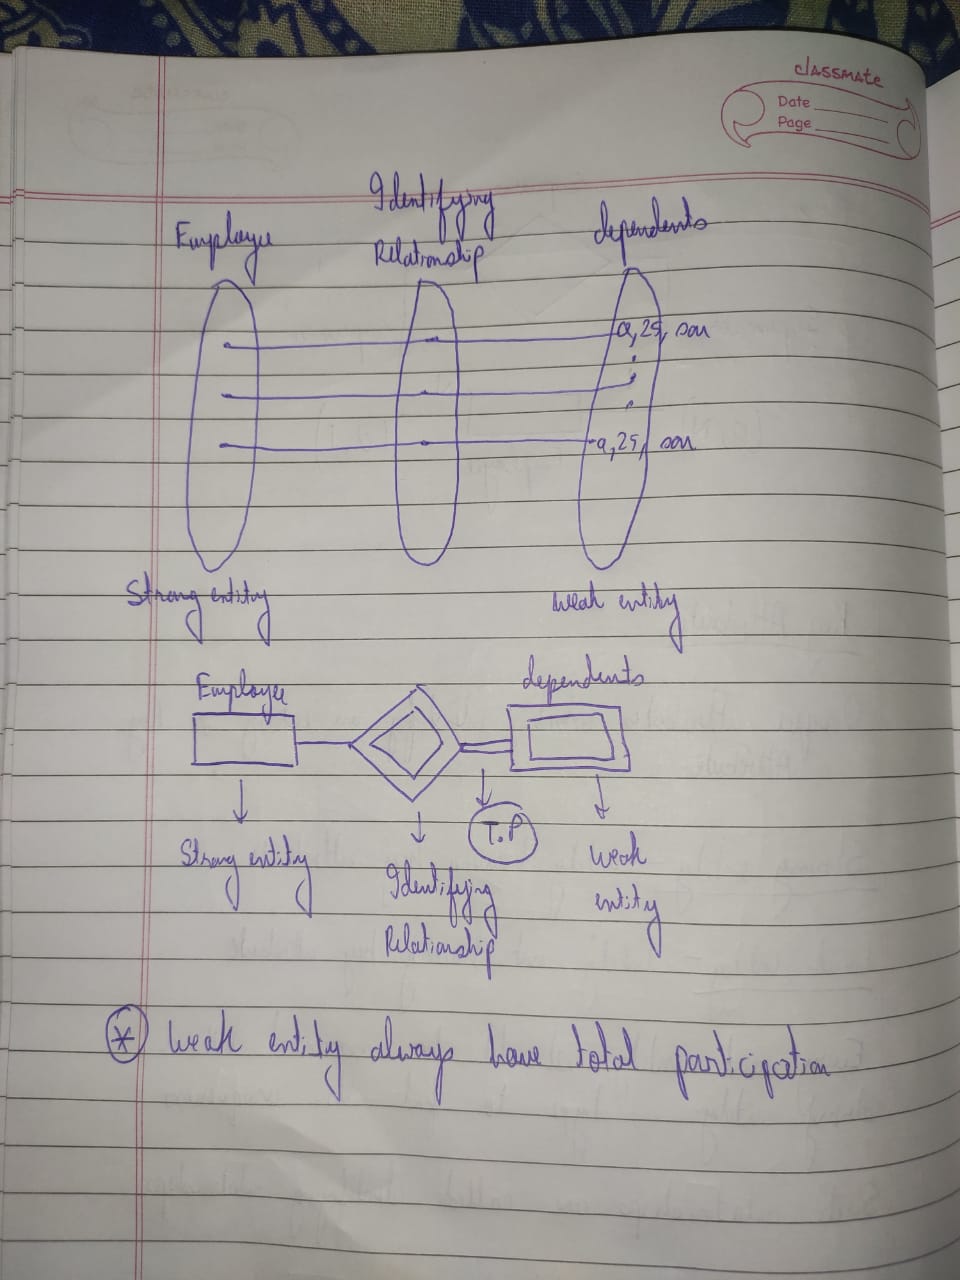 classmate
Date
Page
Employee
Identifying
Relationship
dependents
a, 25, son
a, 25, son
Strong entity
weak entity
Employee
dependents
T.P
Strong entity
Identifying
Relationship
weak
entity
* weak entity always have total participation